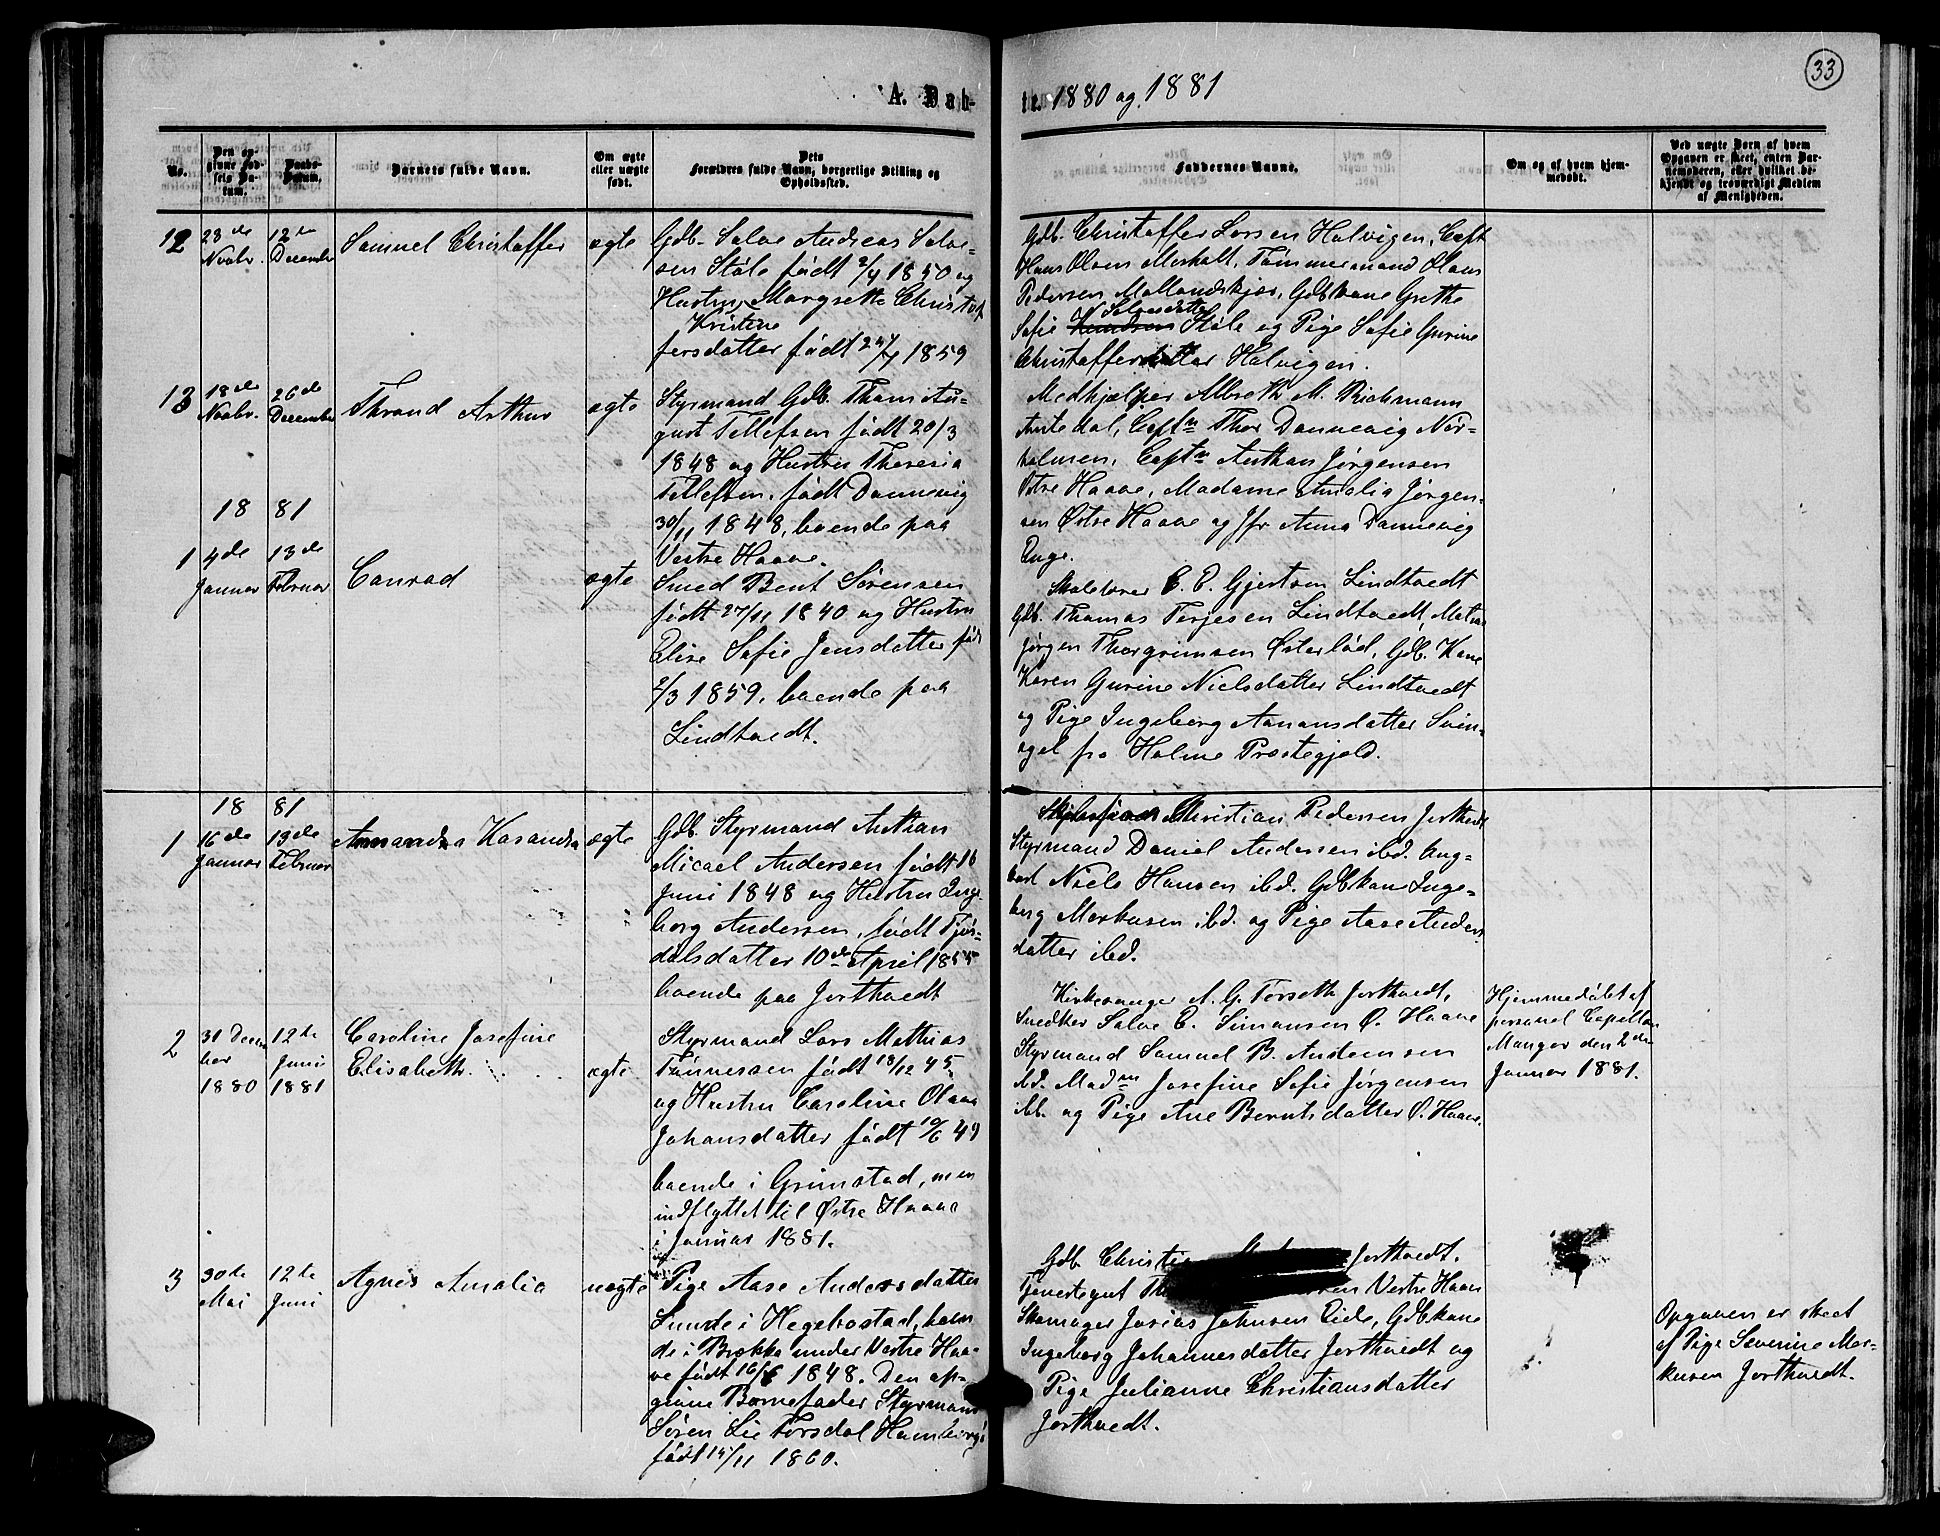 33
A. Daab-
te. 1880 og 1881
No.
Den op-
givne Fød-
sels Da-
tum.
Daabs-
Datum.
Barnets fulde Navn.
Om ægte
eller uægte
født.
Dets
Forældres fulde Navn, borgerlige Stilling og
Opholdssted.
Faddernes Navne.
Om og af hvem hjem-
medøbt.
Ved uægte Børn af hvem
Opgaven er skeet, enten Bar-
nemoderen, eller hvilket be-
kjendt og troværdigt Medlem
af Menigheden.
12
28de
Novbr.
12te
December
Samuel Christoffer
ægte
Gdb. Salve Andreas Salve-
sen Støle født 2/4 1850 og
Hustru Margrethe Christof
Kristine
fersdatter født 24/4 1859
Gdb. Christoffer Larsen Halvigen, Capt
Hans Olsen Morholt, Tømmermand Olaus
Pedersen Mollandskjær, Gdbkone Grethe
Salvesdatter
Sofie Knudsen Støle og Pige Sofie Gurine
Christoffersdatter Halvigen.
13
18de
Novbr.
26de
December
Thrand Arthur
ægte
Styrmand Gdb. Thom Au-
gust Tellefsen født 20/3
1848 og Hustru Theresia
Tellefsen, født Dannevig
30/11 1848, boende paa
Vestre Haave.
Medhjælper Albreth M. Richmann
Amtedal, Captn Thor Dannevig Nør-
holmen, Captn Anthon Jørgensen
Østre Haave, Madame Amalia Jørgen-
sen Østre Haave og Jfr Anna Dannevig
Enge.
18 81
1
4de
Januar
13de
Februar
Conrad
ægte
Smed Bent Sørensen
født 27/11 1840 og Hustru
Elise Sofie Jensdatter født
2/3 1859, boende paa
Lindtvedt.
Skolelærer E. P. Gjertsen Lindtvedt
Gdb. Thomas Terjesen Lindtvedt, Matros
Jørgen Thorgrimsen Østerlød, Gdb. Kone
Karen Gurine Nielsdatter Lindtvedt
og Pige Ingeborg Aanonsdatter Svin-
agel fra Holme Præstegjeld.
18 81
1
16de
Januar
13de
Februar
Amanda Kasandra
ægte
Gdb. Styrmand Anthon
Micael Andersen født 16
Juni 1848 og Hustru Inge-
borg Andersen, født Fjør-
dalsdatter 10de April 1855
boende paa Jorthvedt
Christian Pedersen Jorthvedt
Styrmand Daniel Andersen ibd. Ung-
karl Niels Hansen ibd. Gdbkone Inge-
borg Markusen ibd. og Pige Aase Anders
datter ibd.
2
31 Decem
ber
1880
12te
Juni
1881
Caroline Josefine
Elisabeth
ægte
Styrmand Lars Mathias
Tønnessen født 18/12 45
og Hustru Caroline Olava
Johansdatter født 10/6 49
boende i Grimstad, men
indflyttet til Østre Haave
i Januar 1881.
Kirkesanger A. G. Torseth Jorthvedt,
Snedker Salve C. Simonsen Ø. Haave
Styrmand Samuel B. Andersen
ibd. Madm Josefine Sofie Jørgensen
ibd. og Pige Ane Berntsdatter Ø. Haave.
Hjemmedøbt af
personel Capellan
Manger den 2den
Januar 1881.
3
30te
Mai
12te
Juni
Agnes Amalia
uægte
Pige Aase Andersdatter
Sunde i Hegebostad, boen
de i Brække under Vestre Haa-
ve født 16/8 1848. Den op-
givne Barnefader Styrmand
Søren Lie Torsdal Hamborg
født 15/11 1860.
Gdb. Christian Jorthvedt.
Tjenestegut Vestre Haave
Skomager Josias Johnsen Eide, Gdbkone
Ingeborg Johannesdatter Jorthvedt og
Pige Julianne Christiansdatter
Jorthvedt.
Opgaven er skeet
af Pige Severine Mar-
kusen Jorthvedt.